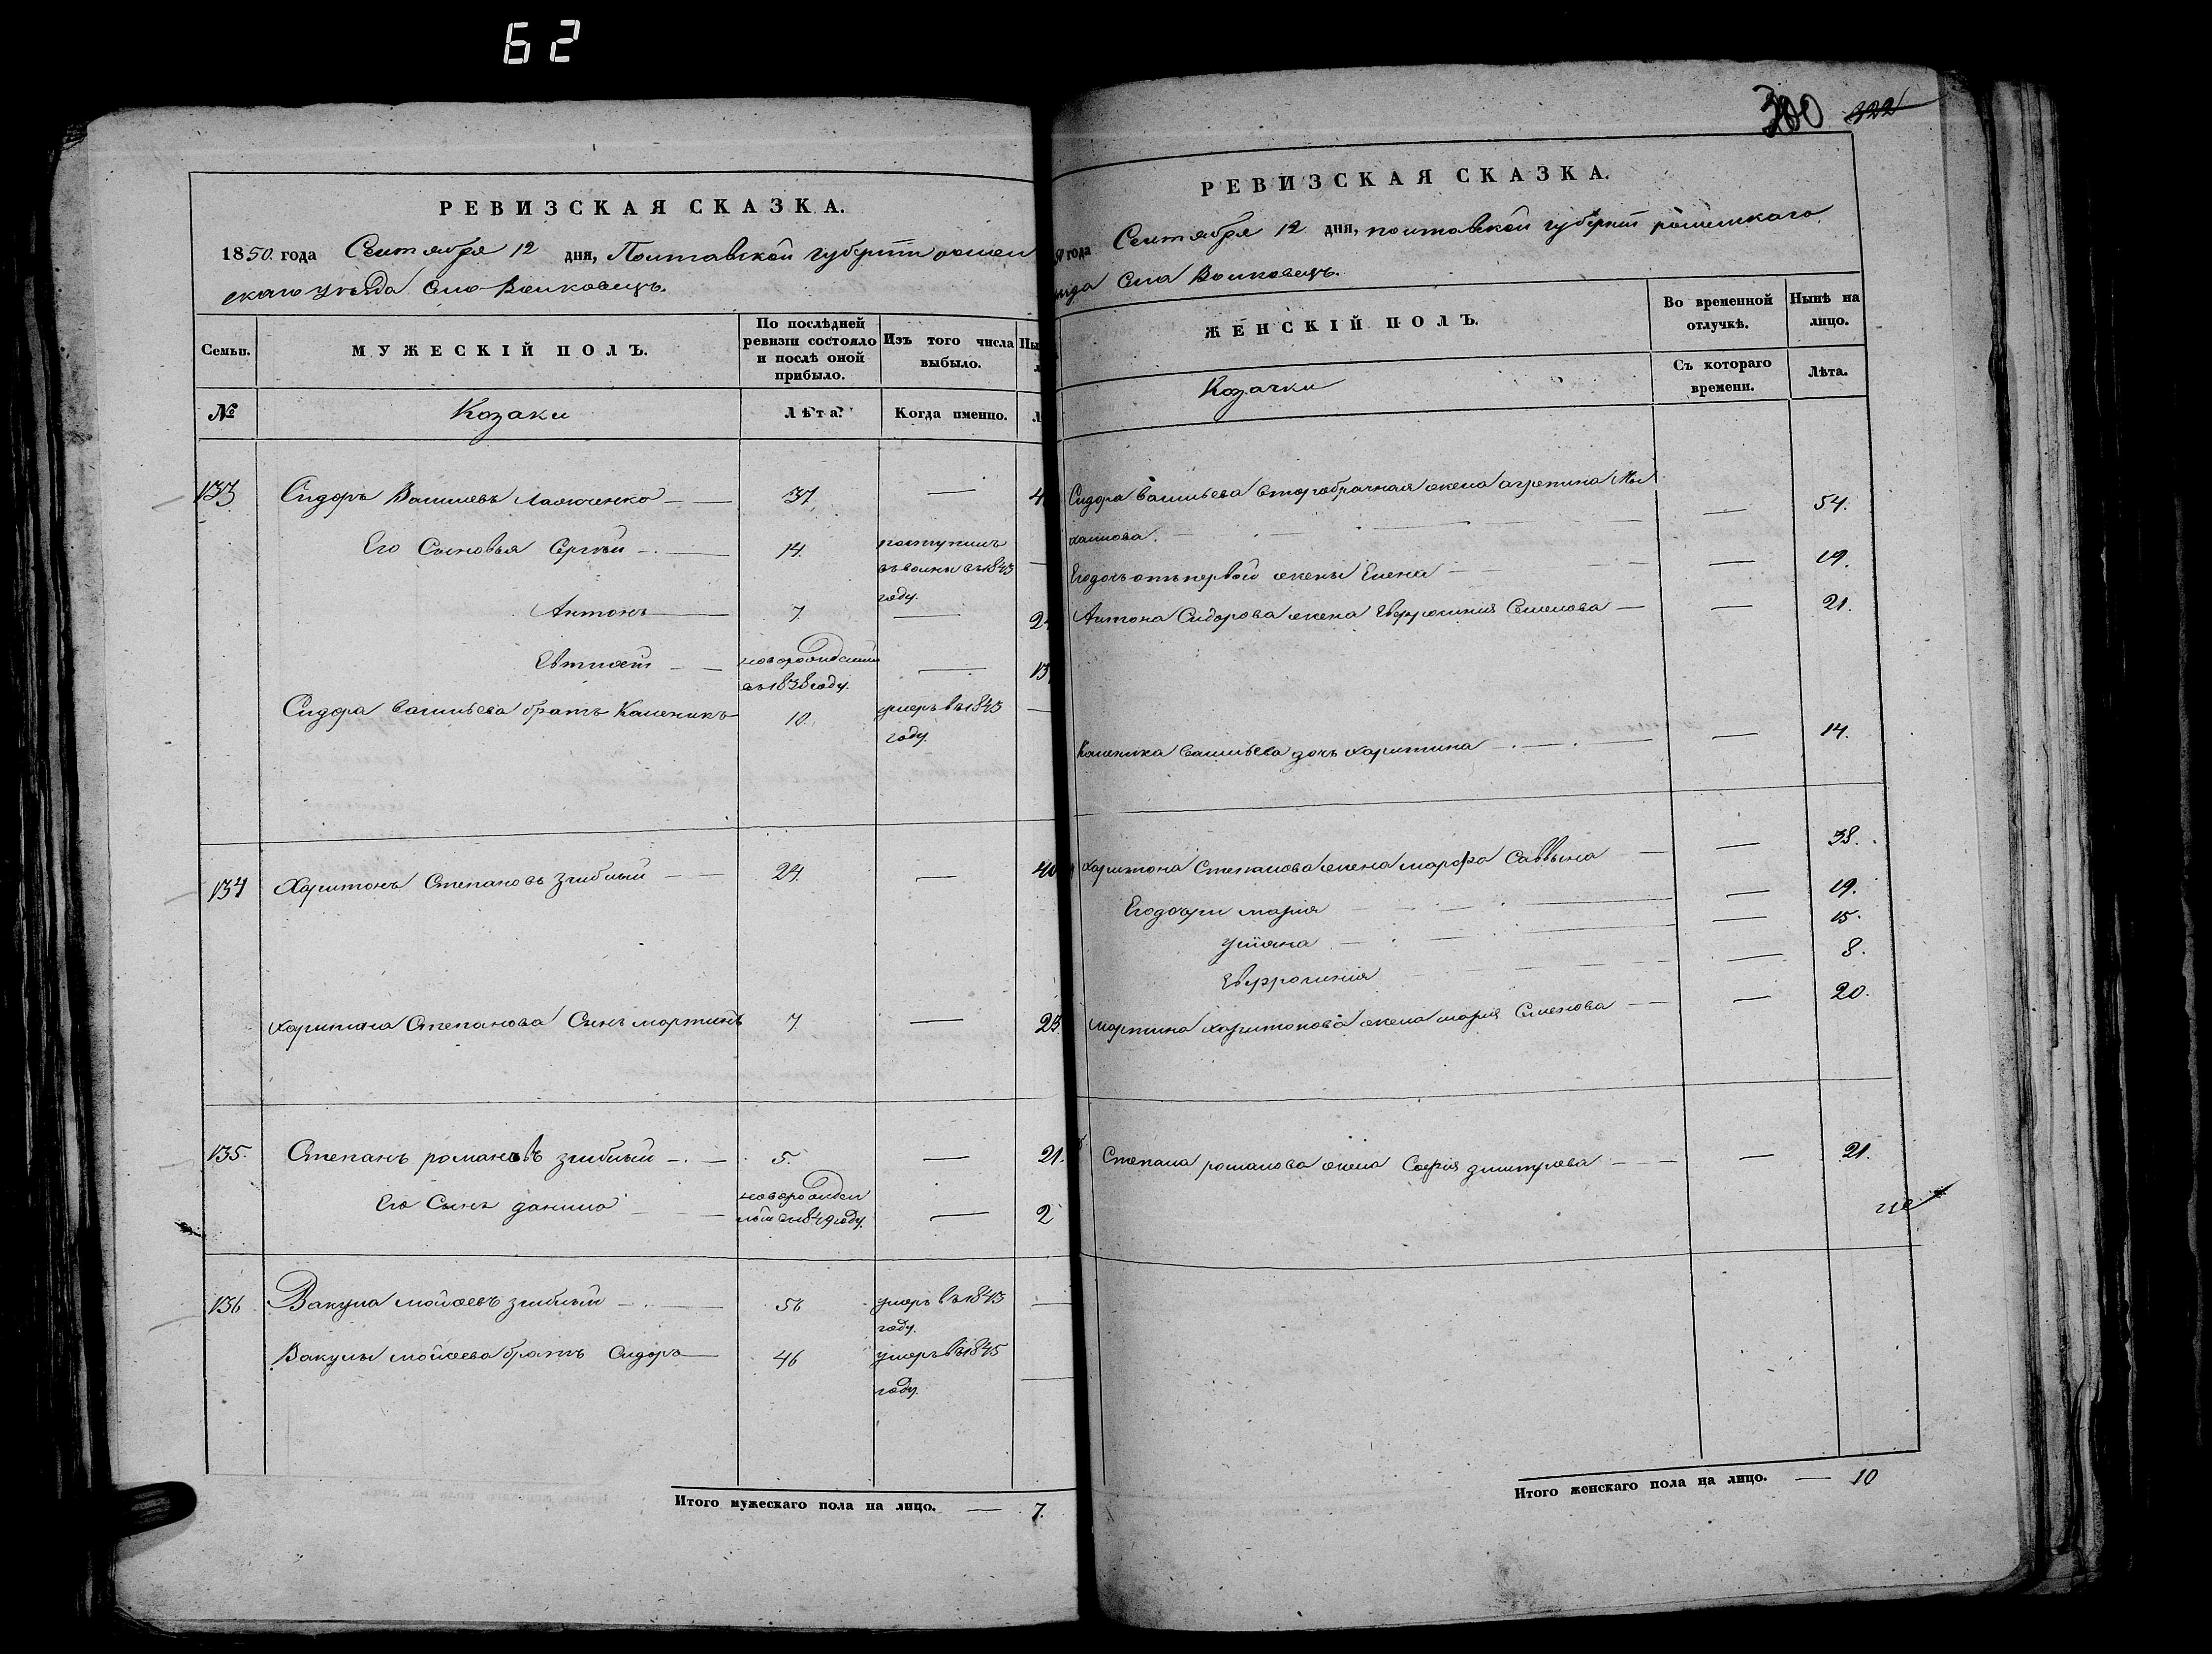 62
РЕВИЗСКАЯ СКАЗКА.
1850 года Сентября 12 дня, Полтавской губерніи ромен
скаго уѣзда Село Волковецъ.
Семьи.
МУЖЕСКІЙ ПОЛЪ.
По послѣдней ревизіи состояло и послѣ оной прибыло.
Изъ того числа выбыло.
№
Козаки
Лѣта.
Когда именно.
133 Сидоръ Васильевъ — 37 —
Его Сыновья Сергѣй — 14 поступилъ
въ 1843
году.
Антонъ — 7. — 2
Евтихій — новорожденный —
въ 1838 году. 13
Сидора Васильева братъ Каленикъ 10. умеръ въ 1843
году
134 Харитонъ Степановъ згибный — 24. — 40
Харитона Степанова Сынъ мартинъ 7 — 23
135. Степанъ романовъ згибный — 5. — 21.
Его Сынъ данило — новорожден
ный въ 1849 году. — 2
136 Вакула мойсеевъ згибный — 56 умеръ въ 1843
году. —
Вакулы мойсеева братъ Сидоръ — 46 умеръ въ 1845
году. —
Итого мужескаго пола на лицо. — 7.
300 322
РЕВИЗСКАЯ СКАЗКА.
года Сентября 12 дня, полтавской губерніи роменскаго
Села Волковецъ.
ЖЕНСКІЙ ПОЛЪ.
Во временной отлучкѣ.
Нынѣ на лицо.
Козачки
Съ котораго времени.
Лѣта.
Сидора Васильева второбрачная жена агрепина Ми
хайлова. — 54.
Его дочь отъ первой жены Елена — 19.
Антона Сидорова жена Евфросинія Семенова — 21.
Каленика Васильева дочь харитина — 14.
харитона Степанова жена марфа Саввына — 38.
Его дочери марія — 19.
уліяна — 15.
Евфросинія — 8.
мартина харитонова жена марія Семенова — 20.
Степана романова жена Софія дмитріева — 21.
Итого женскаго пола на лицо. — 10